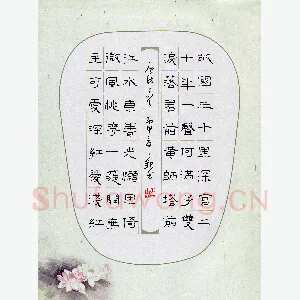 故國三千里深宮二
十年一聲何滿子雙
淚落君前黃師塔前
唐詩二首
江水東春光懶困倚
微風桃花一簇開無
主可愛深紅愛淺紅